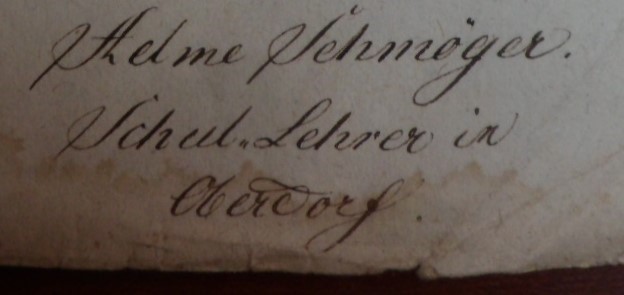 Helme Schmöger.
Schul„Lehrer in
Oberdorf.